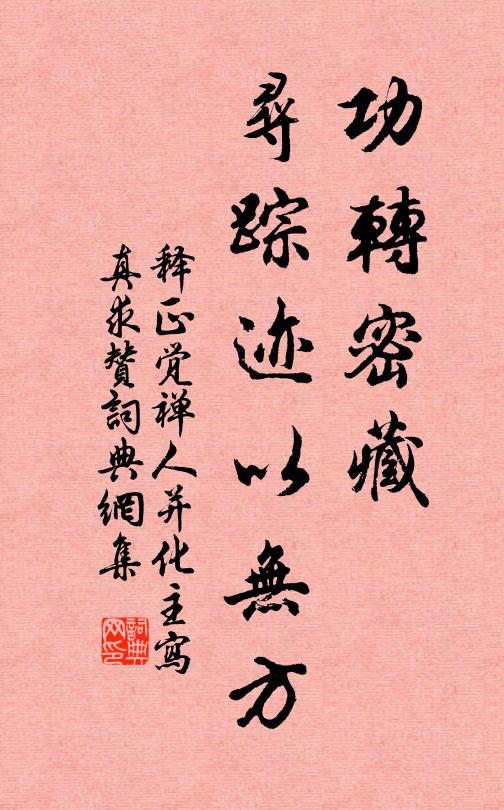 功轉密藏
尋踪迹以無方
释正觉禅人并化主寫
真求贊詞典網集
詞典
网印